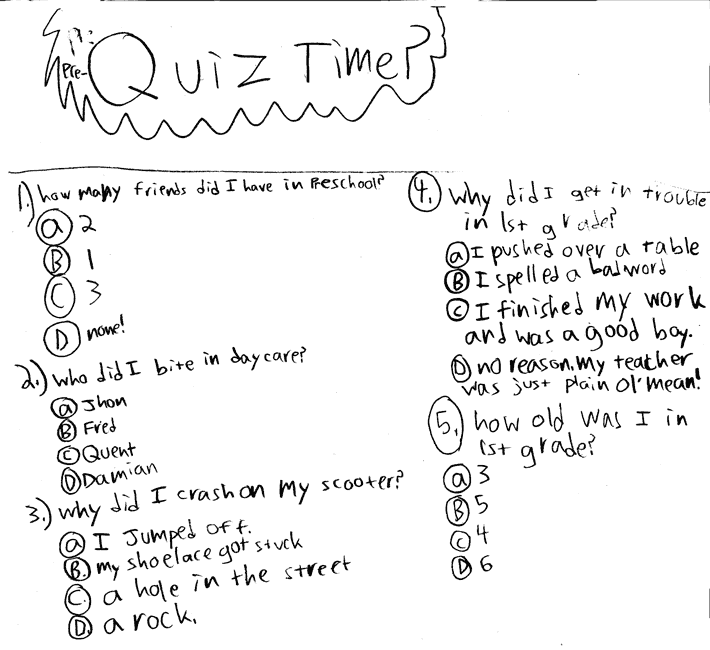 Pre-Quiz Time?
1.) how many friends did I have in Preschool?
a 2
B 1
C 3
D none!
2.) who did I bite in daycare?
a Jhon
B Fred
C Quent
D Damian
3.) why did I crash on my scooter?
a I Jumped off.
B. my shoelace got stuck
C. a hole in the street
D. a rock.
4. why did I get in trouble
in 1st grade?
a I pushed over a table
B I spelled a bad word
C I finished my work
and was a good boy.
D no reason. my teacher
was just plain ol' mean!
5. how old was I in
1st grade?
a 3
B 5
C 4
D 6